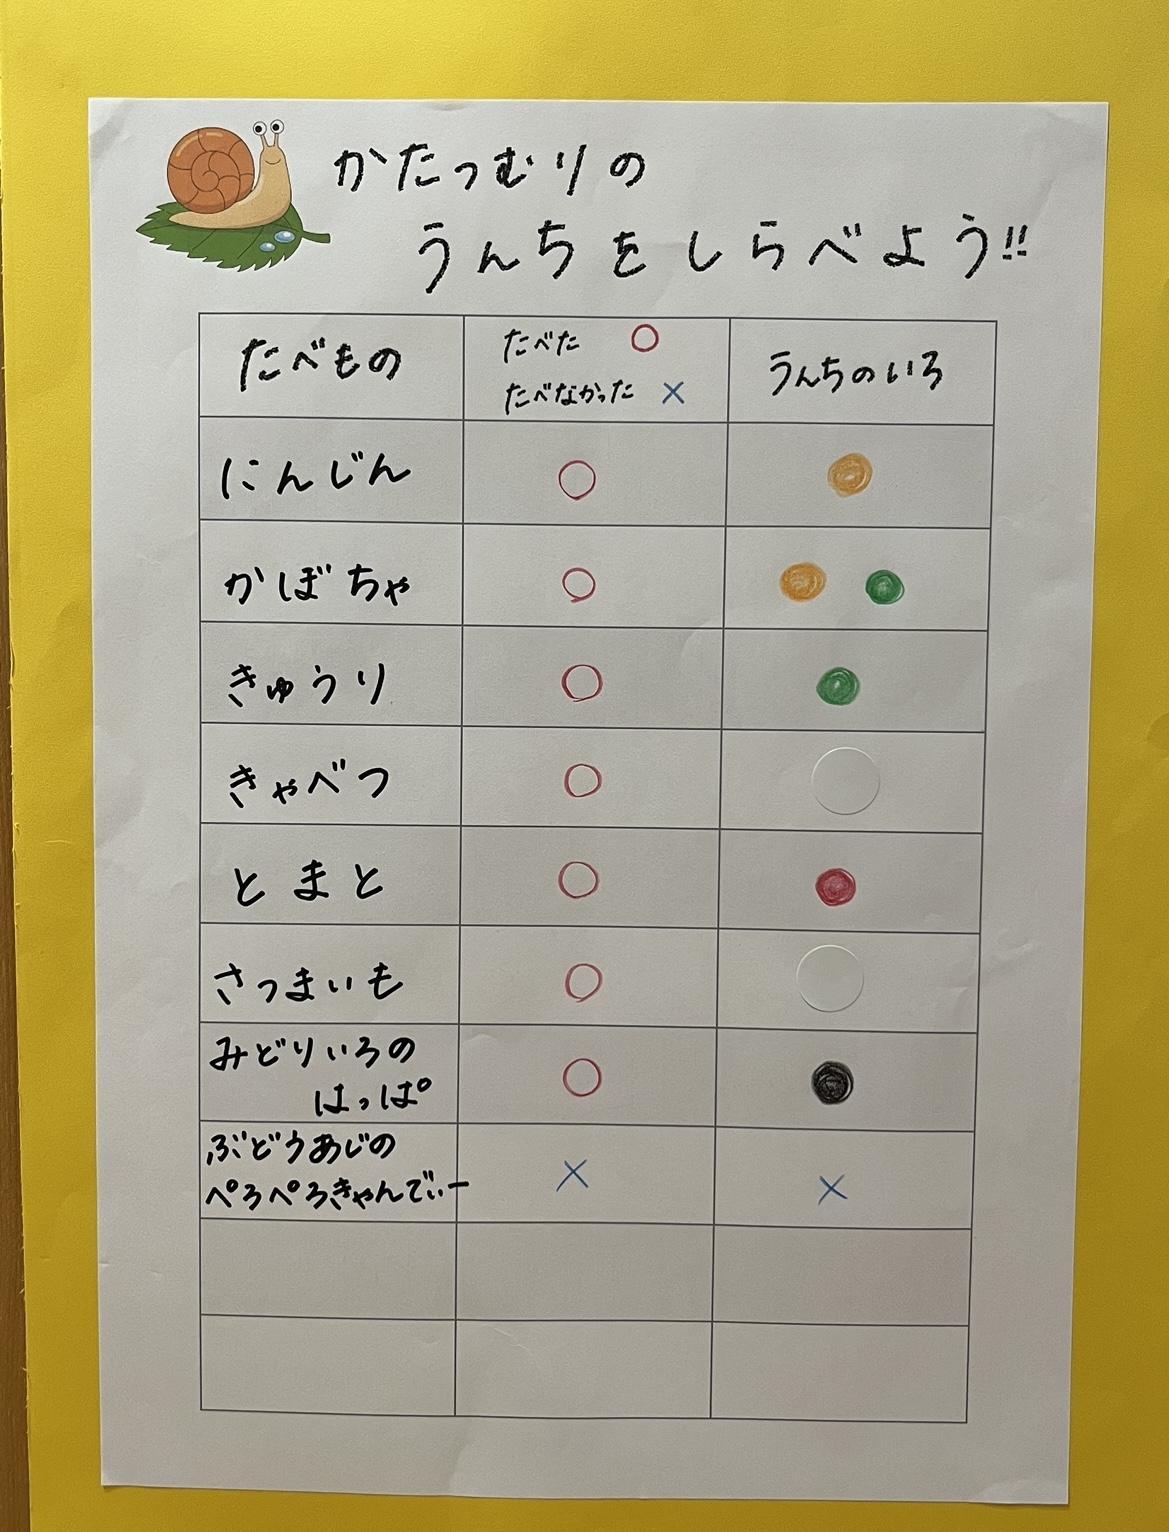 かたつむりの
うんちをしらべよう!!
たべもの
たべた ○
たべなかった ×
うんちのいろ
にんじん ○
かぼちゃ ○
きゅうり ○
きゃべつ ○
とまと ○
さつまいも ○
みどりいろの
はっぱ ○
ぶどうあじの
ぺろぺろきゃんでぃー × ×